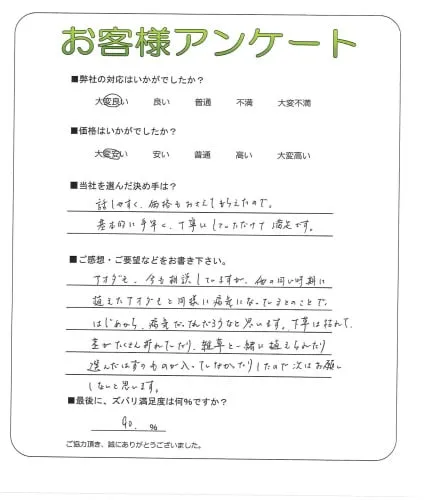 お客様アンケート
■弊社の対応はいかがでしたか？
大変良い 良い 普通 不満 大変不満
■価格はいかがでしたか？
大変安い 安い 普通 高い 大変高い
■当社を選んだ決め手は？
話しやすく、価格もおさえてもらえたので。
基本的に手早く、丁寧にしていただけて満足です。
■ご感想・ご要望などをお書き下さい。
アオダモ、今も相談していますが、他の同い時期に
植えたアオダモと同様に病気になっているとのことで
はじめから、病気だったんだろうなと思います。下草は枯れて、
茎がたくさん折れていたり、雑草と一緒に植えられたり
選んだはずのものが入っていなかったりしたので次はお願い
しないと思います。
■最後に、ズバリ満足度は何％ですか？
90. ％
ご協力頂き、誠にありがとうございました。